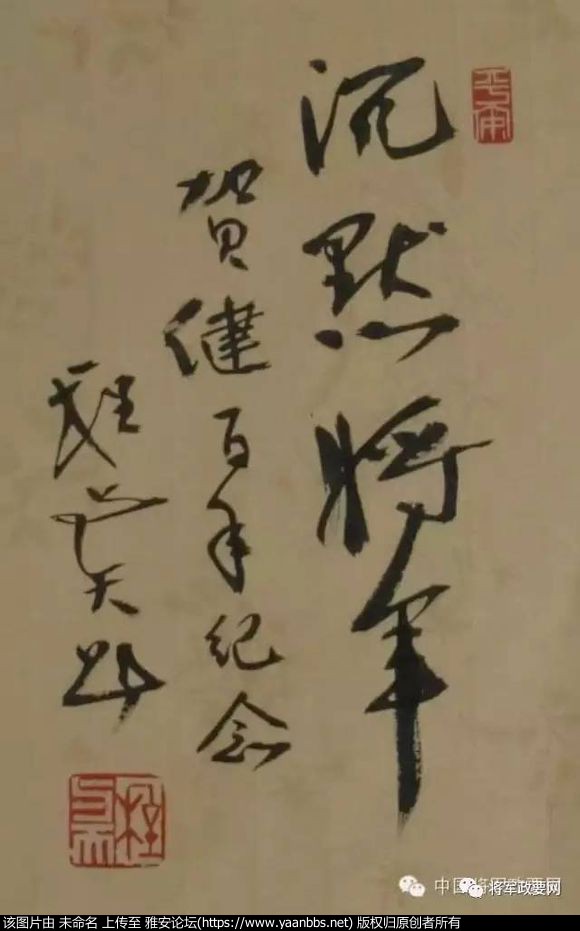 沉默将军
贺健百年纪念
中国将军政要网
将军政要网
该图片由 未命名 上传至 雅安论坛(https://www.yaanbbs.net) 版权归原创者所有